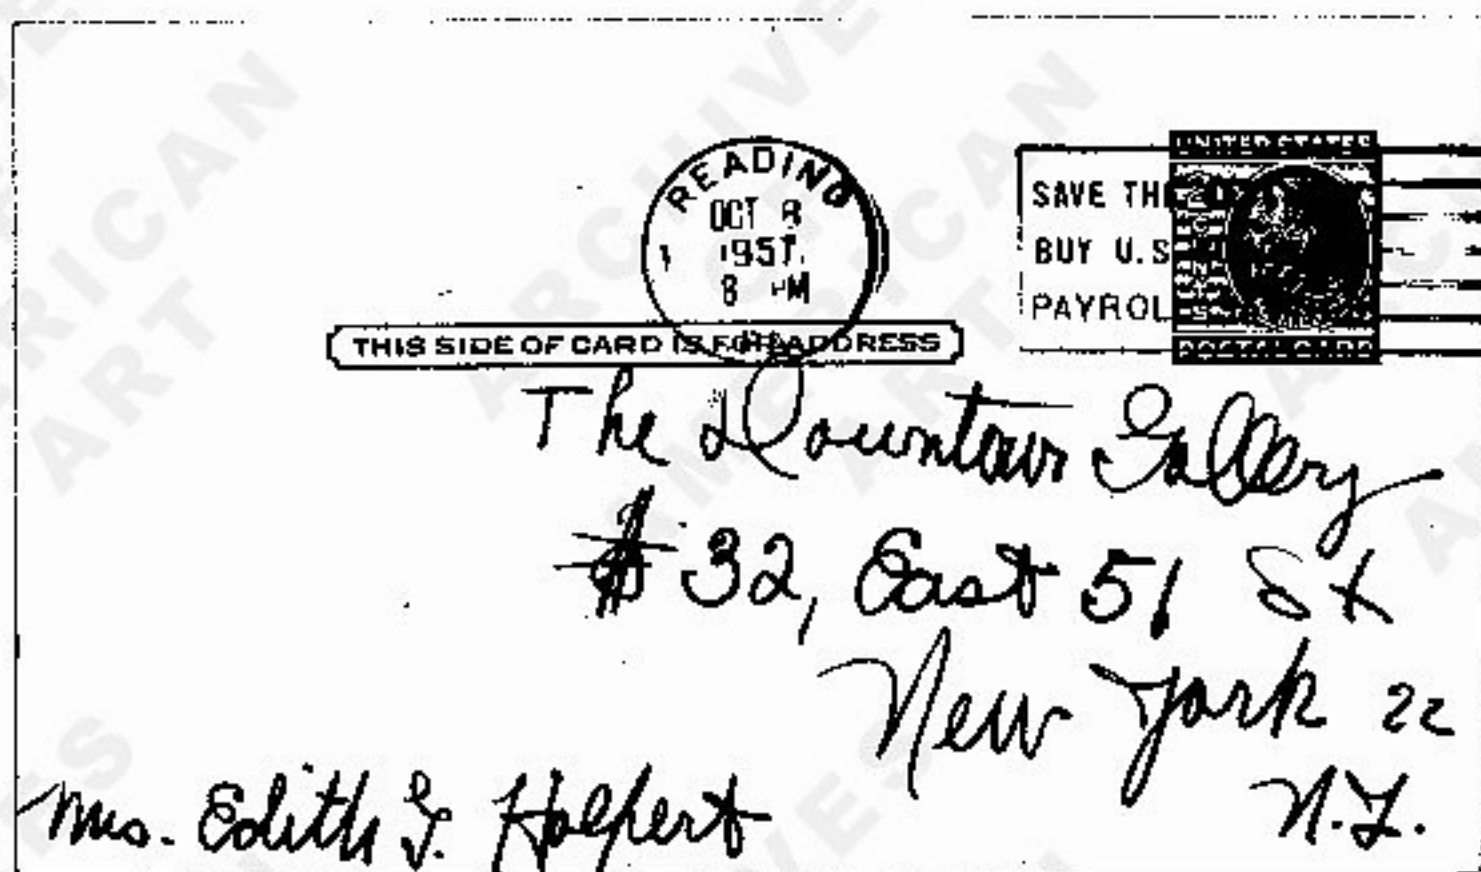 READING
OCT 8
1957
8 PM
SAVE THE
BUY U.S
PAYROL
UNITED STATES
POSTAL CARD
THIS SIDE OF CARD IS FOR ADDRESS
The Downtown Gallery
# 32, East 51 St
New York 22
N.Y.
Mrs. Edith G. Halpert
ARCHIVES
AMERICAN
ART